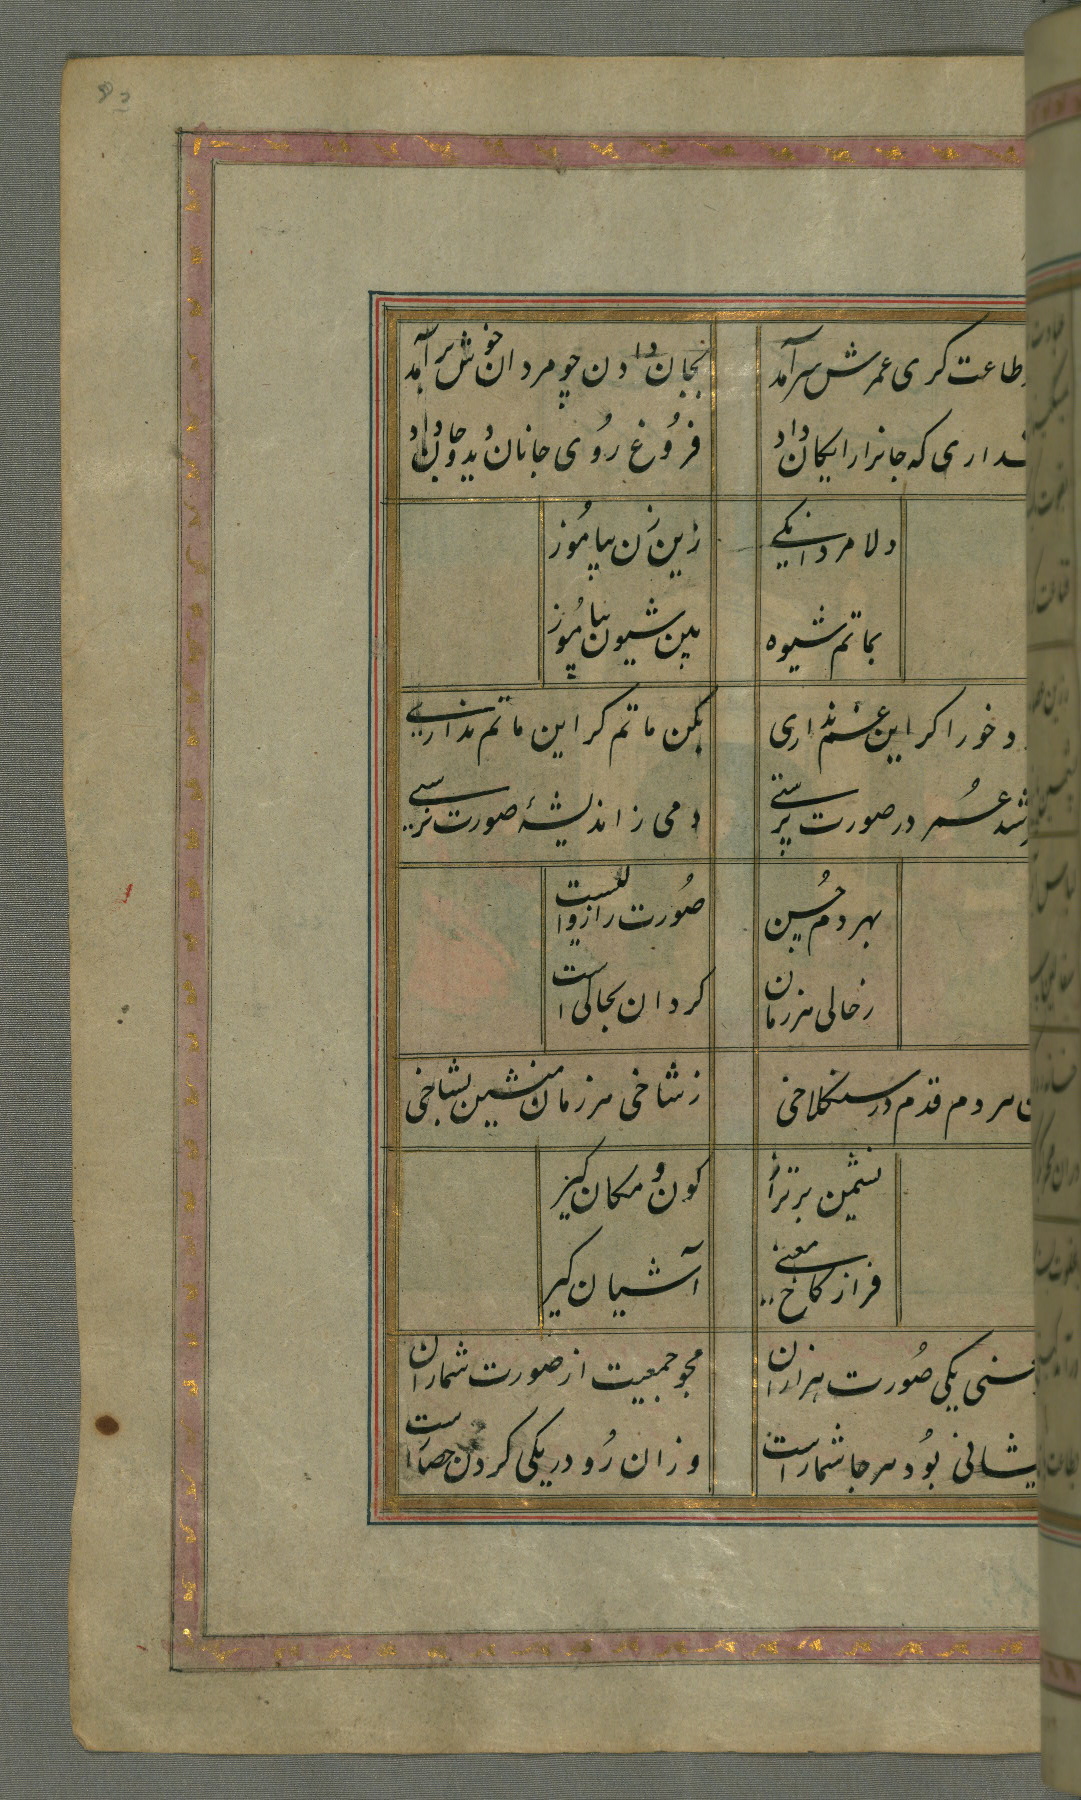 طاعت کری عمرش سرآمد
بجان دادن چو مردان خوش برآمد
نداری که جانرا رایکان داد
فروغ روی جانان دید و جان داد
دلا مردانکی
زین زن بیاموز
بماتم شیوه
بین شیون بیاموز
خود را کر این غم نداری
بکن ماتم کر این ماتم نداری
شد عمر در صورت پرستی
دمی ز اندیشهٔ صورت نرستی
بهر دم حسن
صورت را زوالیست
ز حالی هر زمان
کردان بحالی است
هر دم قدم در سنکلاخی
ز شاخی هر زمان منشین بشاخی
نشمین برتر از
کون و مکان کیر
فراز کاخ معنی
آشیان کیر
یکی صورت هزاران
مجو جمعیت از صورت شماران
پریشانی بود هر جا شمار است
وزان رو در یکی کردن حصار است